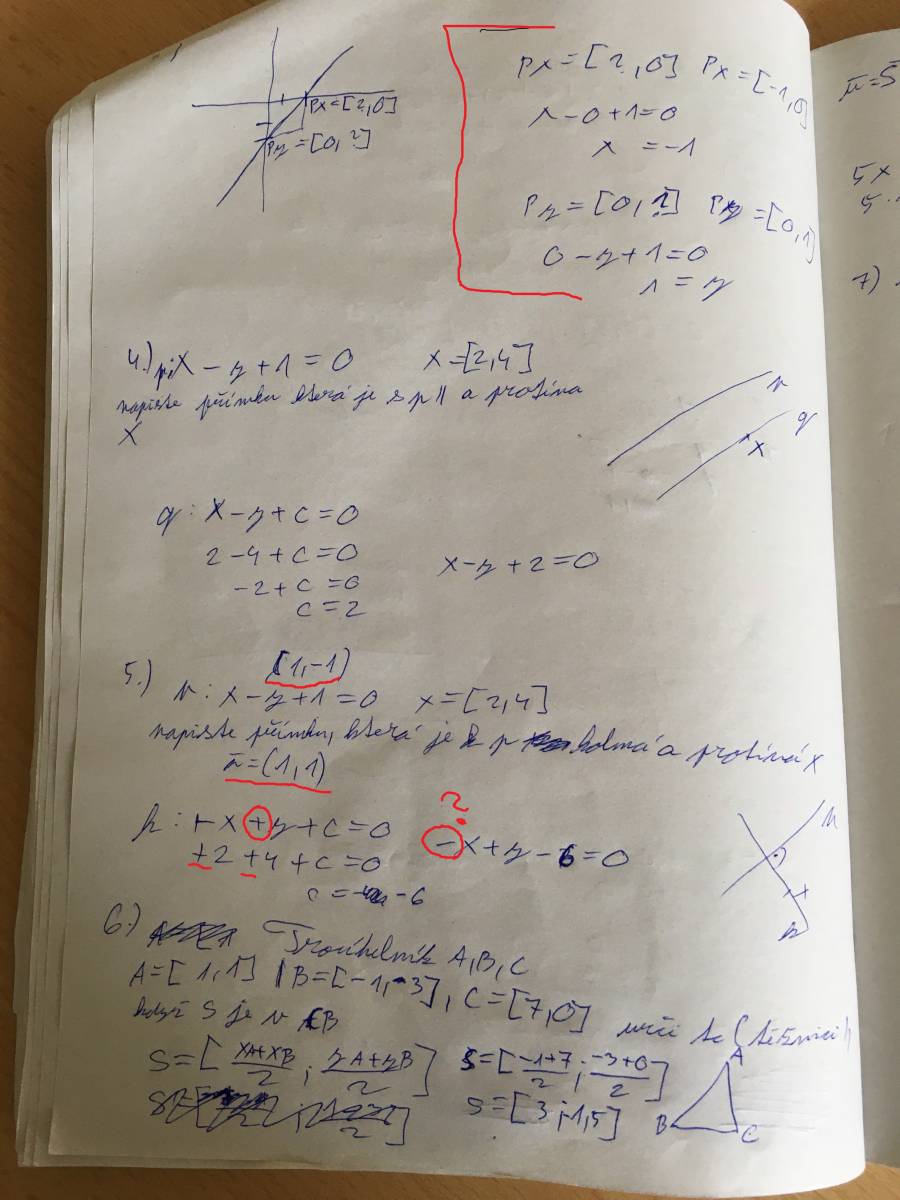 Px=[2,0]
Py=[0,?]
Px=[?,0] Px=[-1,0]
x-0+1=0
x = -1
Py=[0,?] Py=[0,1]
0-y+1=0
1 = y
4.) p: x-y+1=0 x=[2,4]
napište přímku která je s p || a protíná
X
p
q
X
q: x-y+c=0
2-4+c=0
x-y+2=0
-2+c=0
c=2
(1,-1)
5.)
p: x-y+1=0 x=[2,4]
napište přímku, která je k p kolmá a protíná x
=(1,1)
?
k: +x+y+c=0
-x+y-6=0
+2+4+c=0
c= -6
6.)
Trojúhelník A,B,C
A=[1,1] B=[-1,-3], C=[7,0]
když S je v CB
urči tc (těžnici)
S=[xA+xB/2 ; yA+yB/2] S=[-1+7/2 ; -3+0/2]
S=[3;-1,5]
A
B
C
7)